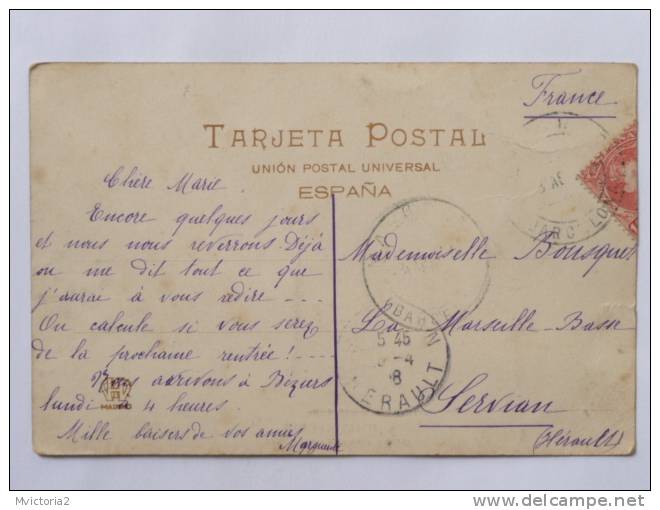 France
TARJETA POSTAL
UNIÓN POSTAL UNIVERSAL
ESPAÑA
Chère Marie
Encore quelques jours
et nous nous reverrons. Déjà
on me dit tout ce que
j'aurai à vous
On calcule si vous serez
de la prochaine rentrée! ----
Nous arrivons à Béziers
lundi à 4 heures.
Mille baisers de vos amies
Marguerite
Mademoiselle Bousquet
La Marseille Basse
Servian
(Hérault)
5 45
-4
8
HERAULT
MADRID
Mvictoria2
delcampe.net